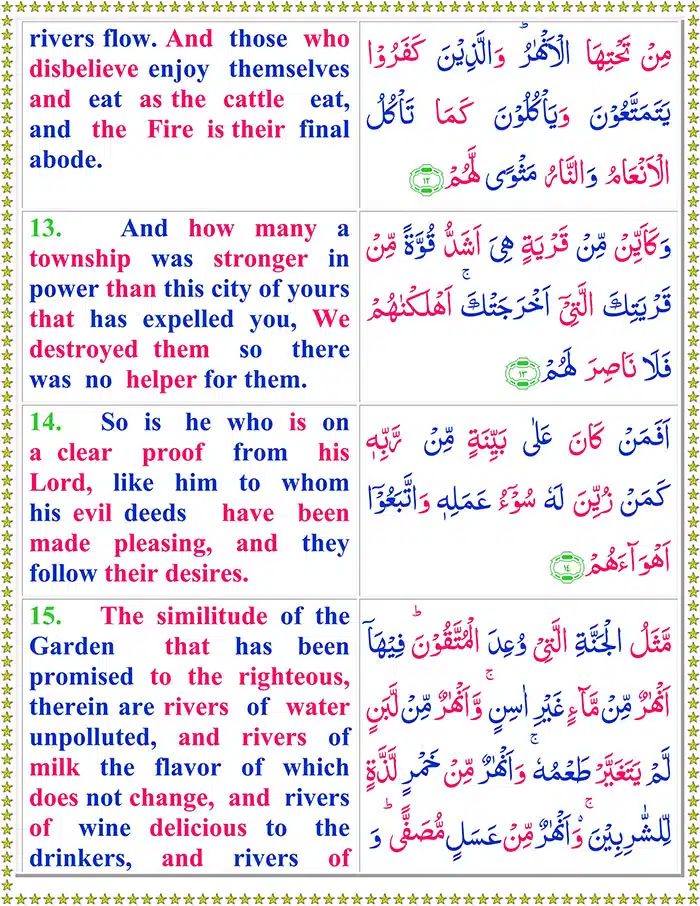 rivers flow. And those who
disbelieve enjoy themselves
and eat as the cattle eat,
and the Fire is their final
abode.
مِنْ تَحْتِهَا الْاَنْهٰرُ ؕ وَالَّذِيْنَ كَفَرُوْا
يَتَمَتَّعُوْنَ وَيَاْكُلُوْنَ كَمَا تَاْكُلُ
الْاَنْعَامُ وَالنَّارُ مَثْوًى لَّهُمْ ۱۲
13. And how many a
township was stronger in
power than this city of yours
that has expelled you, We
destroyed them so there
was no helper for them.
وَكَاَيِّنْ مِّنْ قَرْيَةٍ هِىَ اَشَدُّ قُوَّةً مِّنْ
قَرْيَتِكَ الَّتِىْۤ اَخْرَجَتْكَ ۚ اَهْلَكْنٰهُمْ
فَلَا نَاصِرَ لَهُمْ ۱۳
14. So is he who is on
a clear proof from his
Lord, like him to whom
his evil deeds have been
made pleasing, and they
follow their desires.
اَفَمَنْ كَانَ عَلٰى بَيِّنَةٍ مِّنْ رَّبِّهٖ
كَمَنْ زُيِّنَ لَهٗ سُوْٓءُ عَمَلِهٖ وَاتَّبَعُوْۤا
اَهْوَآءَهُمْ ۱۴
15. The similitude of the
Garden that has been
promised to the righteous,
therein are rivers of water
unpolluted, and rivers of
milk the flavor of which
does not change, and rivers
of wine delicious to the
drinkers, and rivers of
مَثَلُ الْجَنَّةِ الَّتِىْ وُعِدَ الْمُتَّقُوْنَ ؕ فِيْهَاۤ
اَنْهٰرٌ مِّنْ مَّآءٍ غَيْرِ اٰسِنٍ ۚ وَاَنْهٰرٌ مِّنْ لَّبَنٍ
لَّمْ يَتَغَيَّرْ طَعْمُهٗ ۚ وَاَنْهٰرٌ مِّنْ خَمْرٍ لَّذَّةٍ
لِّلشّٰرِبِيْنَ ۚ وَاَنْهٰرٌ مِّنْ عَسَلٍ مُّصَفًّى ؕ وَ